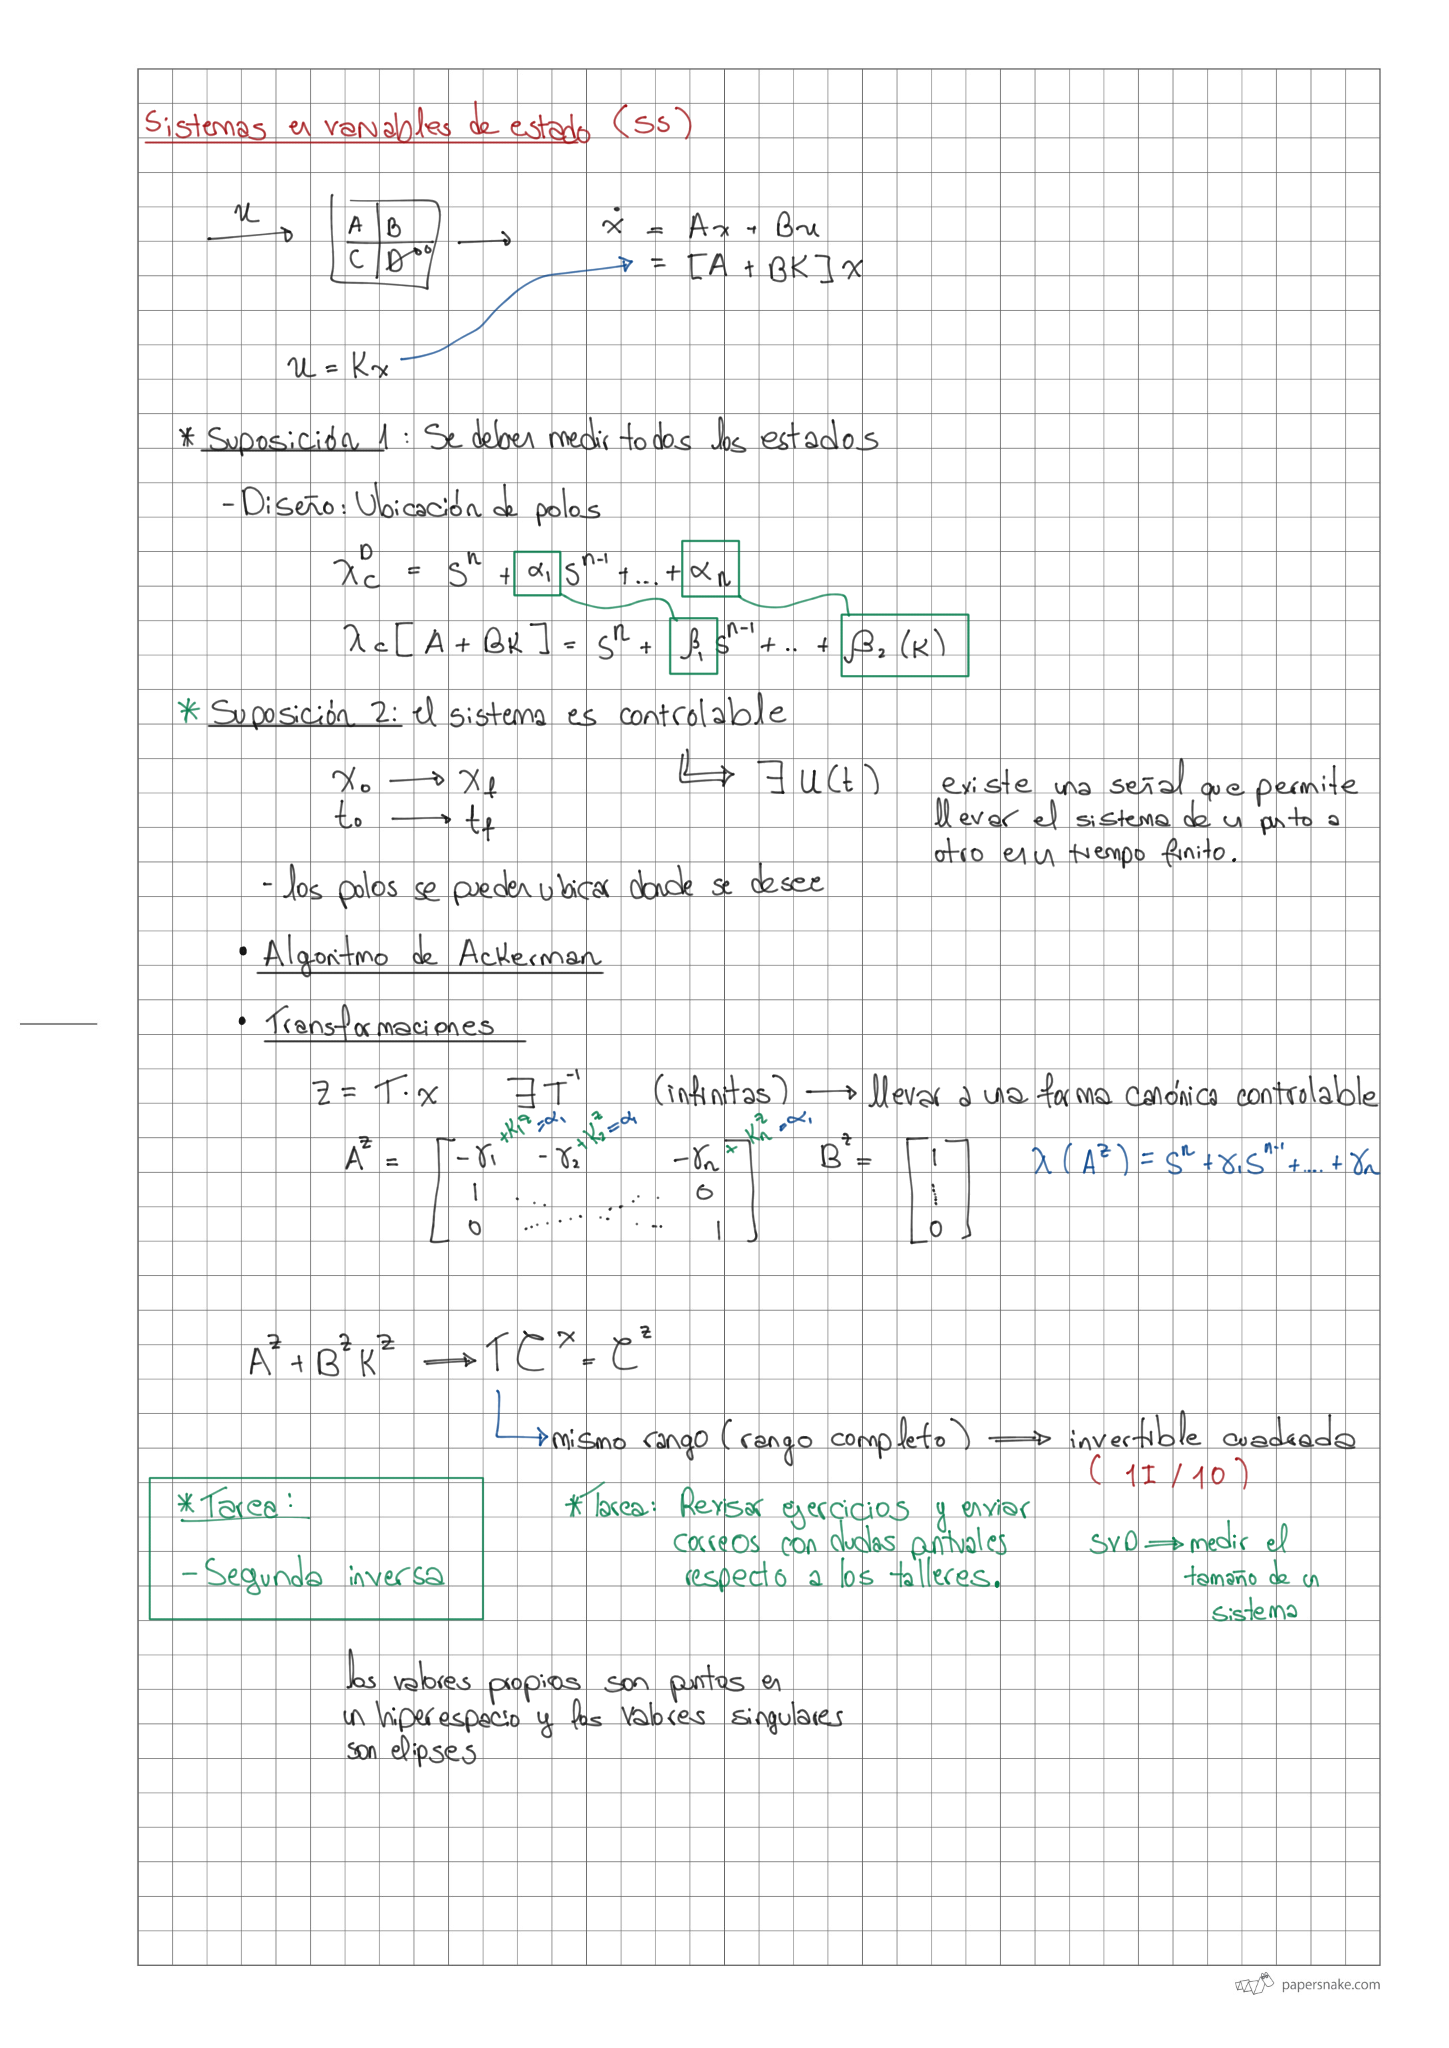 Sistemas en variables de estado (SS)
u
A B
C D
ẋ = Ax + Bu
= [A + BK] x
u = Kx
* Suposición 1: Se deben medir todos los estados
- Diseño: Ubicación de polos
λc^D = s^n + α1 s^n-1 + ... + αn
λc [A + BK] = s^n + β1 s^n-1 + .. + β2 (K)
* Suposición 2: el sistema es controlable
x0 → xf
t0 → tf
⇒ ∃ u(t)
existe una señal que permite
llevar el sistema de un punto a
otro en un tiempo finito.
- los polos se pueden ubicar donde se desee
• Algoritmo de Ackerman
• Transformaciones
z = T·x ∃ T^-1 (infinitas) → llevar a una forma canónica controlable
+K1^z = α1 +K2^z = α1 + Kn^z = α1
A^z = [ -γ1 -γ2 -γn ] B^z = [ 1 ] λ(A^z) = s^n + γ1 s^n-1 + .... + γn
1 0
0 1 0
A^z + B^z K^z → T C^x = C^z
mismo rango (rango completo) ⇒ invertible cuadrada
(1I / 10)
* Tarea:
- Segunda inversa
* Tarea: Revisar ejercicios y enviar
correos con dudas puntuales
respecto a los talleres.
SVD ⇒ medir el
tamaño de un
sistema
los valores propios son puntos en
un hiperespacio y los valores singulares
son elipses
papersnake.com